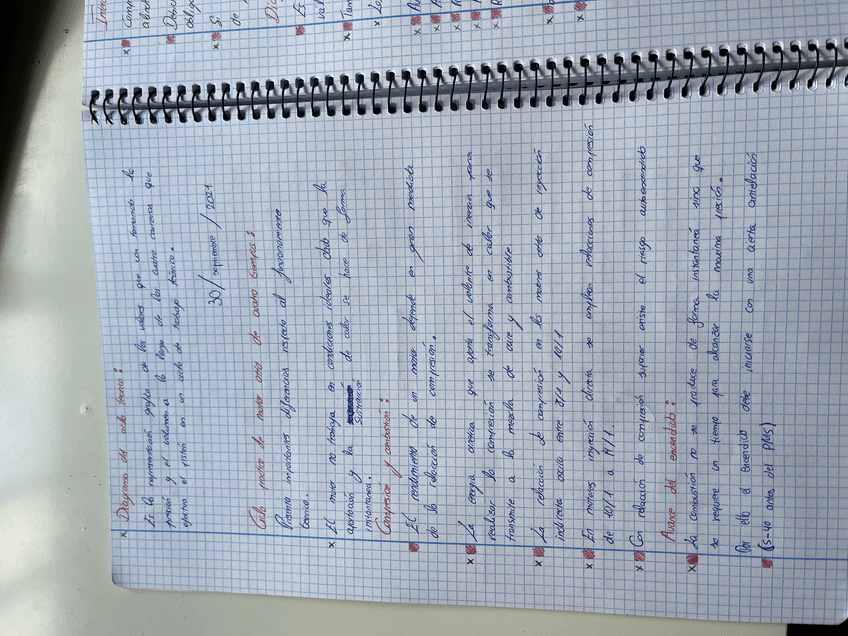 x Diagrama del ciclo teorico:
Es la representación grafica de los valores que van tomando la
presión y el volumen a lo largo de las cuatro carreras que
efectua el pistón en un ciclo de trabajo teórico.
30/septiembre/2021
Ciclo practico de motor otto de cuatro tiempos:
Presenta importantes diferencias respecto al funcionamiento
teorico.
x El motor no trabaja en condiciones ideales dado que la
aportación y la sustracción de calor se hace de forma
instantanea.
Compresion y combustion:
El rendimiento de un motor depende en gran medida
de la relacción de compresión.
x La energia cinetica que aporta el volante de inercia para
realizar la compresión se transforma en calor que se
transmite a la mezcla de aire y combustible
x La relacción de compresión en los motores otto de inyección
indirecta oscila entre 8/1 y 10/1
x En motores inyección directa se emplean relacciones de compresión
de 10/1 a 11/1.
x Con relacción de compresión superior existe el riesgo autoencendido
Avance del encendido:
x La combustion no se produce de forma instantanea sino que
se requiere un tiempo para alcanzar la maxima presión.
Por ello el Encendido debe iniciarse con una cierta antelación
(5-40 antes del PMS)